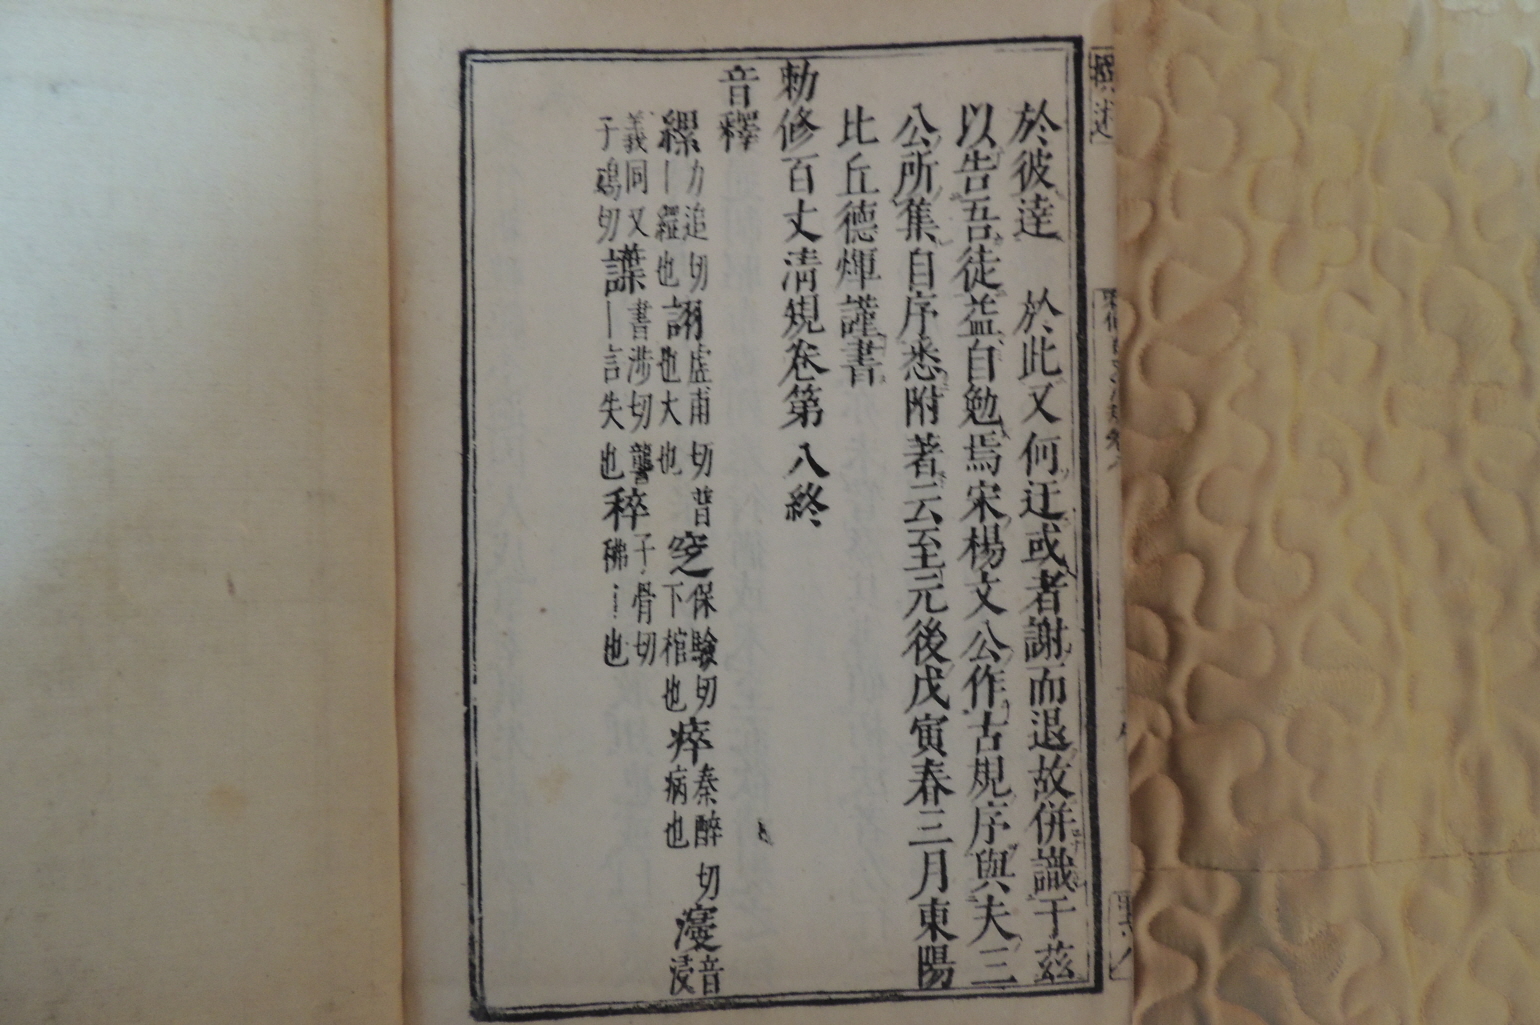 於彼達　於此又何迂或者謝而退故併識于茲
以告吾徒益自勉焉宋楊文公作古規序與夫三
公所集自序悉附著云至元後戊寅春三月東陽
比丘德煇謹書
勅修百丈清規卷第八終
音釋
縲力追切｜䌱也詡虛甫切普也大也窆保驗切下棺也瘁秦醉切病也寖音浸
義同又子鴆切讋書涉切讋｜言失也稡子骨切稀｜也